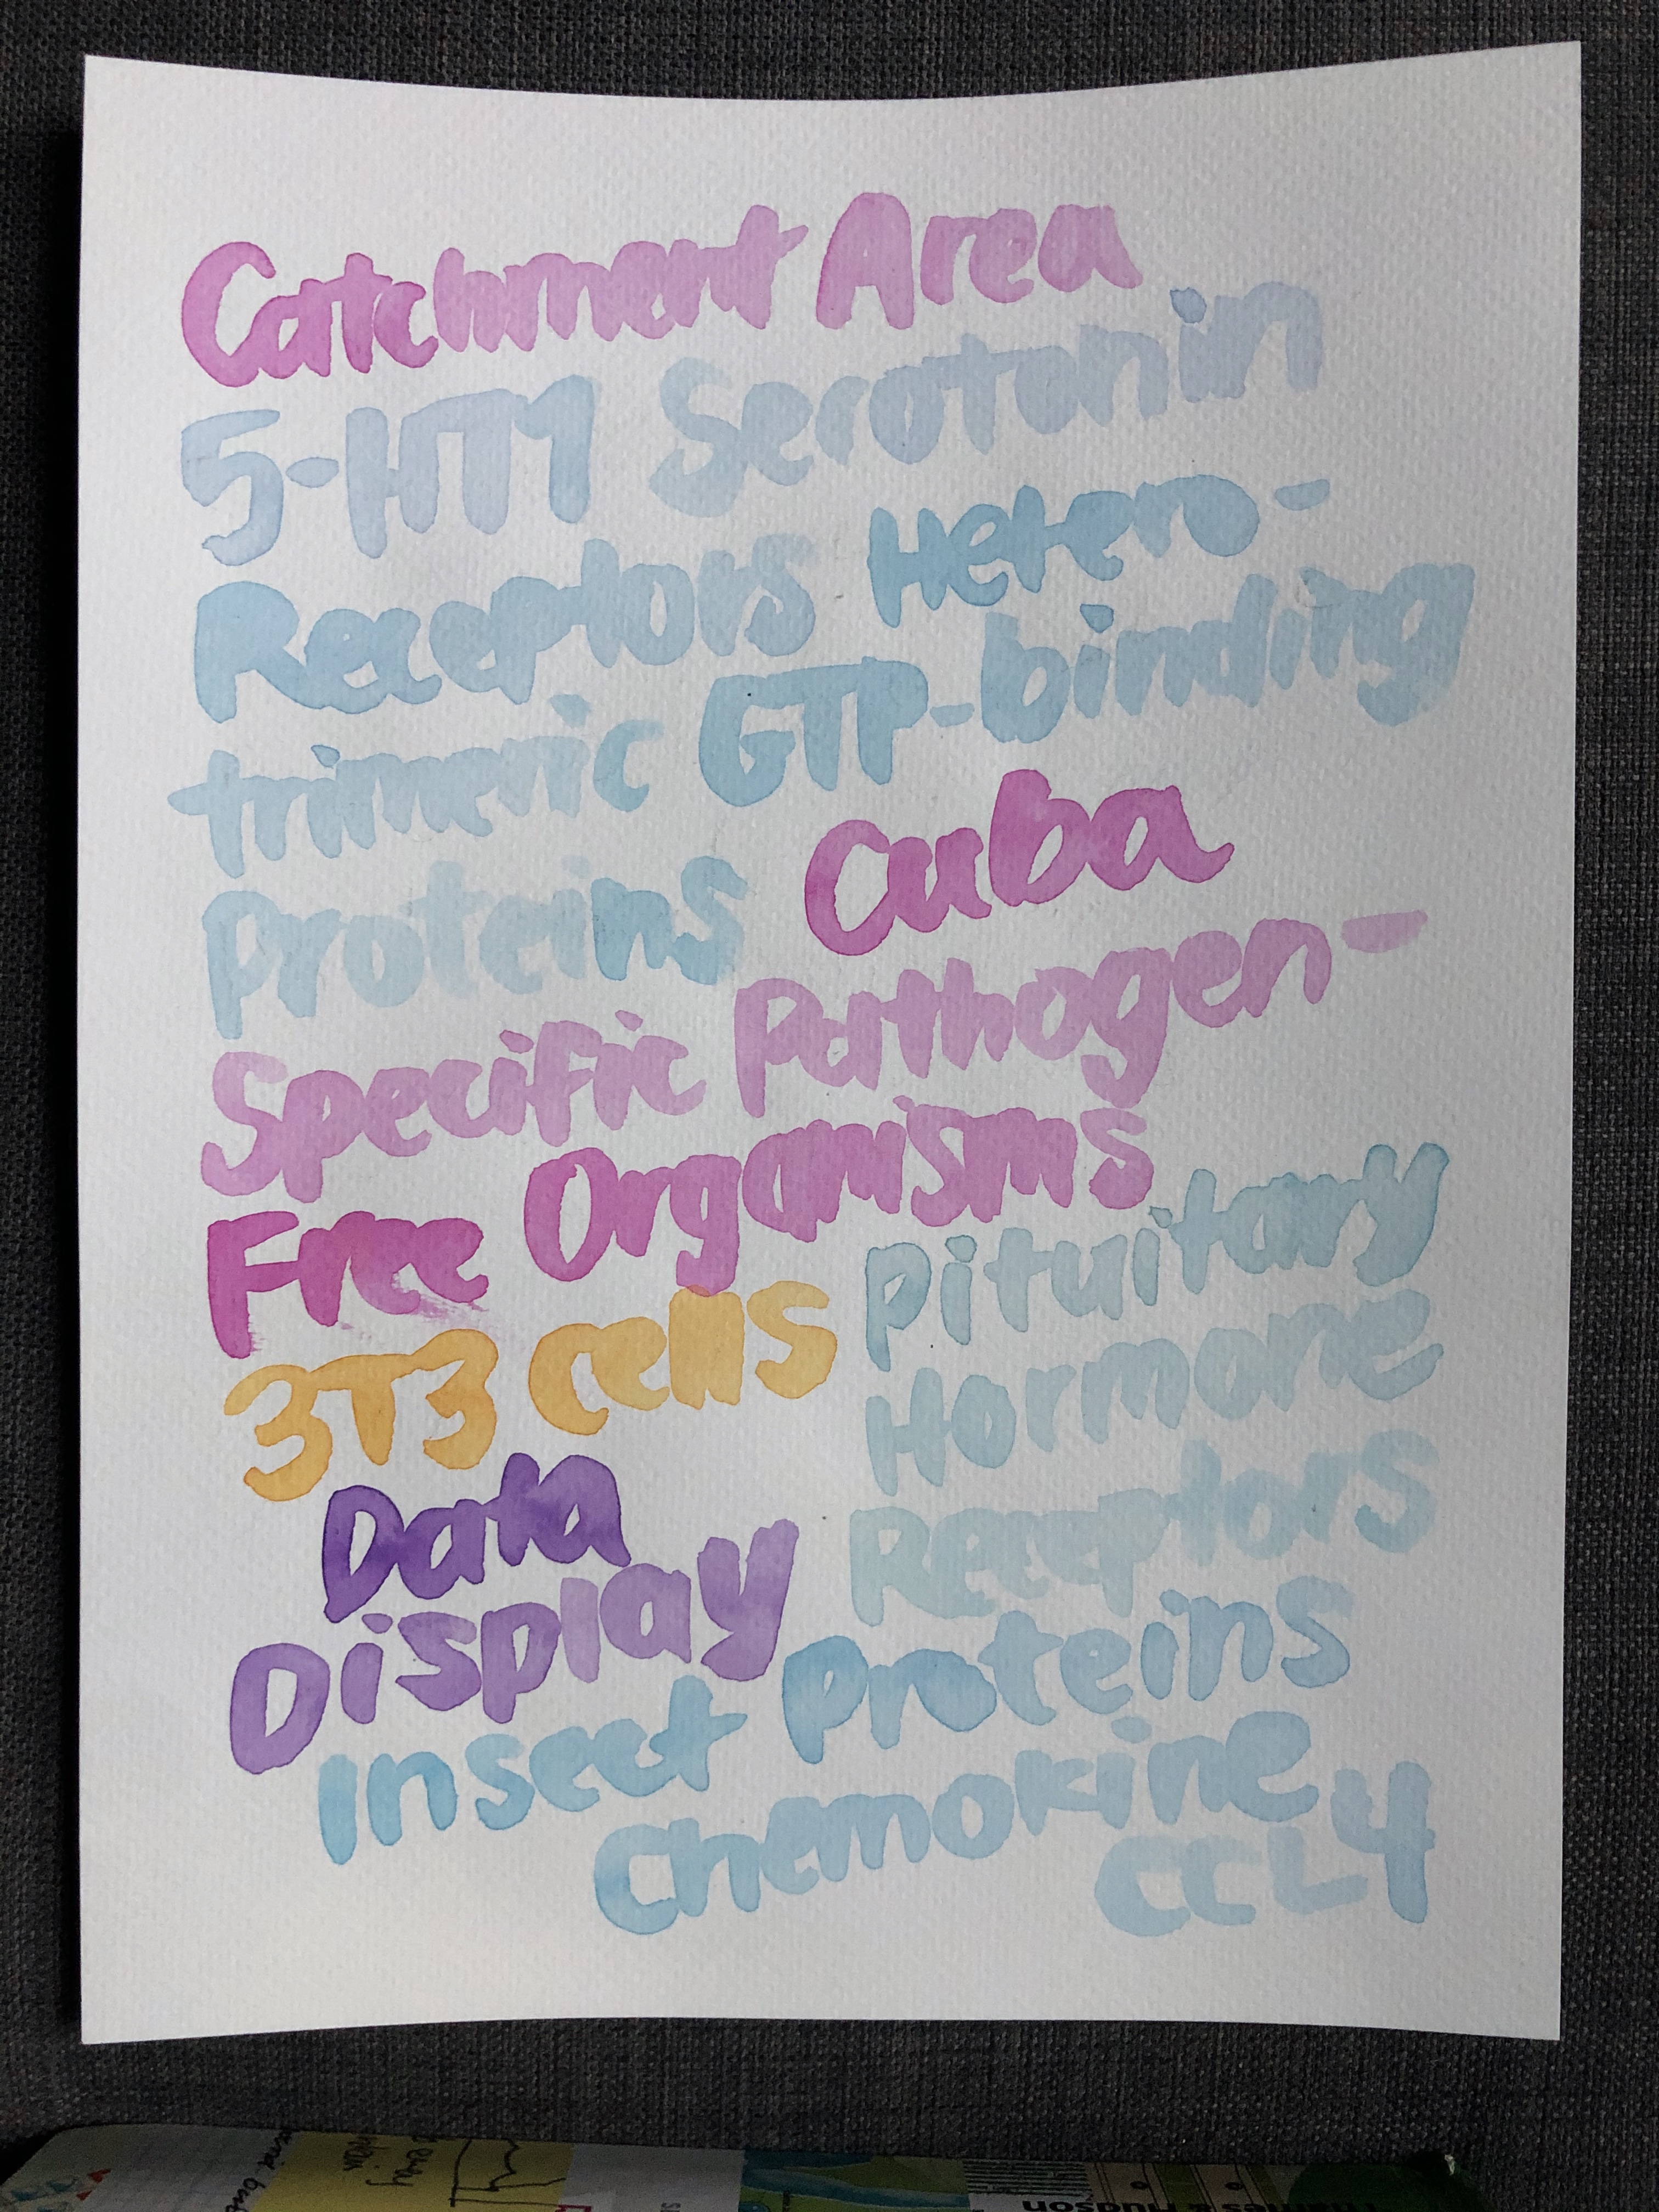 Catchment Area
5-HT1 Serotonin
Receptors Hetero-
trimeric GTP-binding
Proteins Cuba
Specific Pathogen-
Free Organisms
3T3 cells
Pituitary
Hormone
Receptors
Data
Display
Insect Proteins
Chemokine
CCL4
thames & hudson